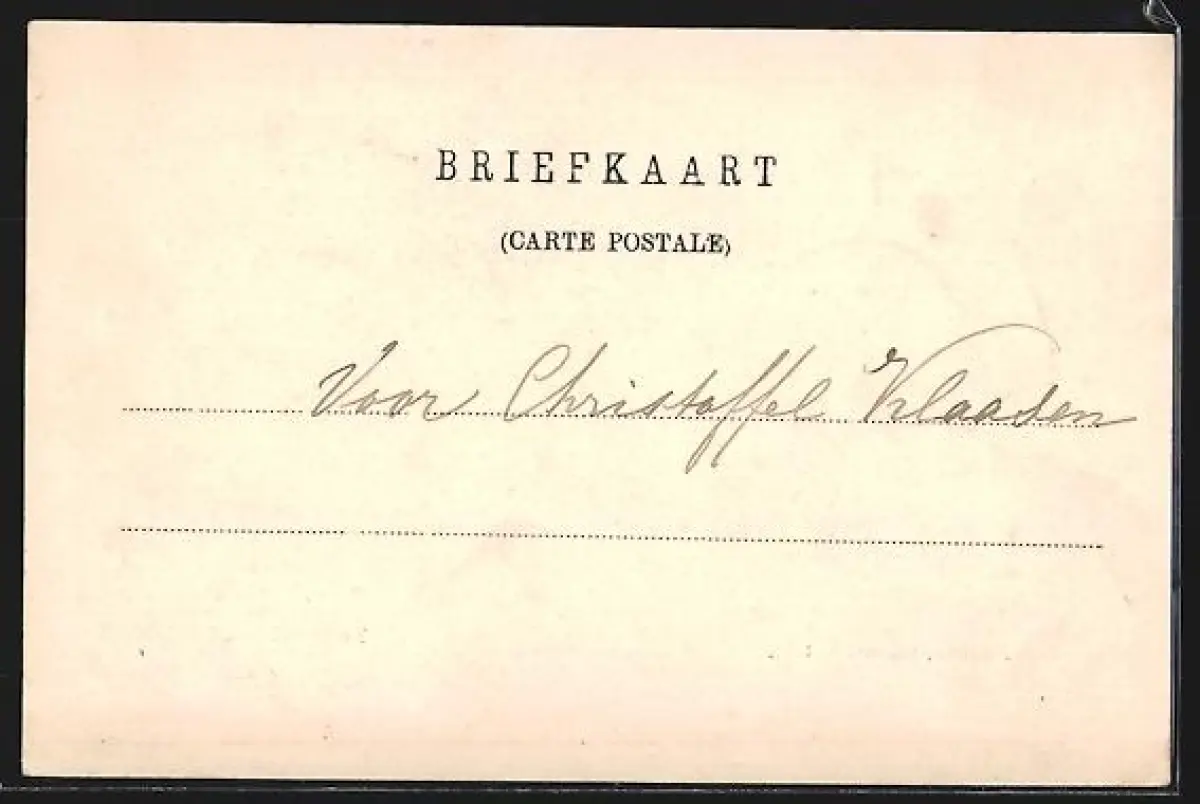 BRIEFKAART
(CARTE POSTALE)
Voor Christoffel Klaasen